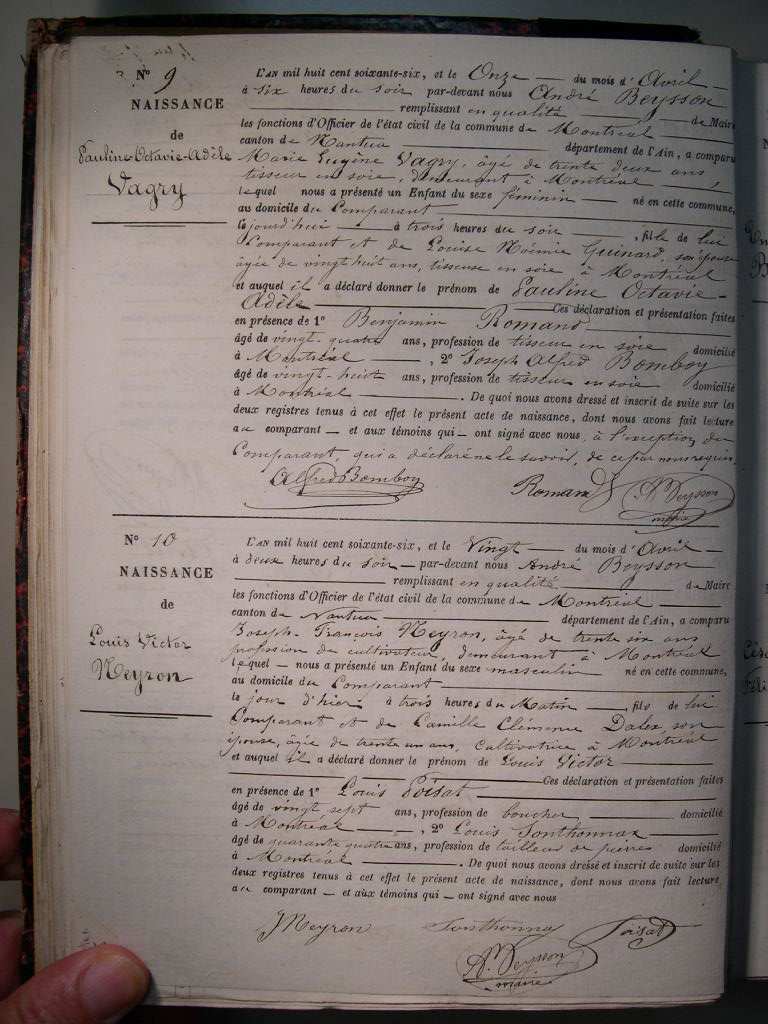 N° 9
NAISSANCE
de
Pauline-Octavie-Adèle
Vagry
L'AN mil huit cent soixante-six, et le Onze du mois d'Avril
à six heures du soir par-devant nous André Beysson
remplissant en qualité de Maire
les fonctions d'Officier de l'état civil de la commune de Montréal
canton de Nantua département de l'Ain, a comparu
Marie Eugène Vagry, âgé de trente deux ans,
tisseur en soie, demeurant à Montréal
lequel nous a présenté un Enfant du sexe féminin né en cette commune,
au domicile du Comparant
le jourd'hui à trois heures du soir, fille de lui
Comparant et de Louise Noémie Guinard, son épouse
âgée de vingt huit ans, tisseuse en soie à Montréal
et auquel il a déclaré donner le prénom de Pauline Octavie-
Adèle Ces déclaration et présentation faites
en présence de 1° Benjamin Romand
âgé de vingt-quatre ans, profession de tisseur en soie domicilié
à Montréal, 2° Joseph Alfred Bomboy
âgé de vingt-huit ans, profession de tisseur en soie domicilié
à Montréal. De quoi nous avons dressé et inscrit de suite sur les
deux registres tenus à cet effet le présent acte de naissance, dont nous avons fait lecture
au comparant — et aux témoins qui — ont signé avec nous, à l'exception du
Comparant, qui a déclaré ne le savoir, de ce par nous requis.
Alfred Bomboy Romand A. Beysson
maire
N° 10
NAISSANCE
de
Louis Victor
Neyron
L'AN mil huit cent soixante-six, et le Vingt du mois d'Avril
à deux heures du soir — par-devant nous André Beysson
remplissant en qualité de Maire
les fonctions d'Officier de l'état civil de la commune de Montréal
canton de Nantua département de l'Ain, a comparu
Joseph-François Neyron, âgé de trente six ans
profession de cultivateur, demeurant à Montréal
lequel — nous a présenté un Enfant du sexe masculin né en cette commune,
au domicile du Comparant
le jour d'hier à trois heures du Matin, fils de lui
Comparant et de Camille Clémence Dalex, son
épouse, âgée de trente un ans, cultivatrice à Montréal
et auquel il a déclaré donner le prénom de Louis Victor
Ces déclaration et présentation faites
en présence de 1° Louis Poisat
âgé de vingt sept ans, profession de boucher domicilié
à Montréal, 2° Louis Sonthonnax
âgé de quarante quatre ans, profession de tailleur de pierres domicilié
à Montréal. De quoi nous avons dressé et inscrit de suite sur les
deux registres tenus à cet effet le présent acte de naissance, dont nous avons fait lecture
au comparant — et aux témoins qui — ont signé avec nous
J Neyron Sonthonnax Poisat
A. Beysson
maire